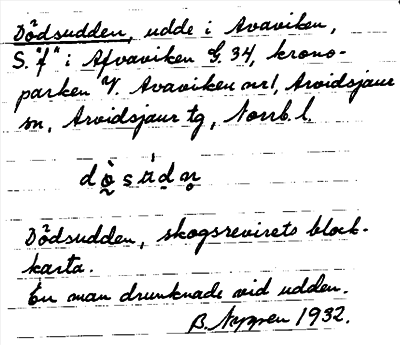 Dödsudden, udde i Avaviken,
S. "f" i Afvaviken G. 34, krono-
parken V. Avaviken nr 1, Arvidsjaur
sn, Arvidsjaur tg, Norrb. l.
Dödsudden, skogsrevirets block-
karta.
En man drunknade vid udden.
B. Nygren 1932.